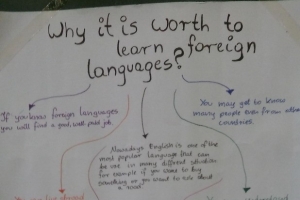 Why it is worth to
learn foreign
languages?
If you know foreign languages
you will find a good, well paid job.
You may get to know
many people even from other
countries.
Nowadays English is one of the
most popular language that can
be use in many different situation
for example if you want to buy
something or you want to